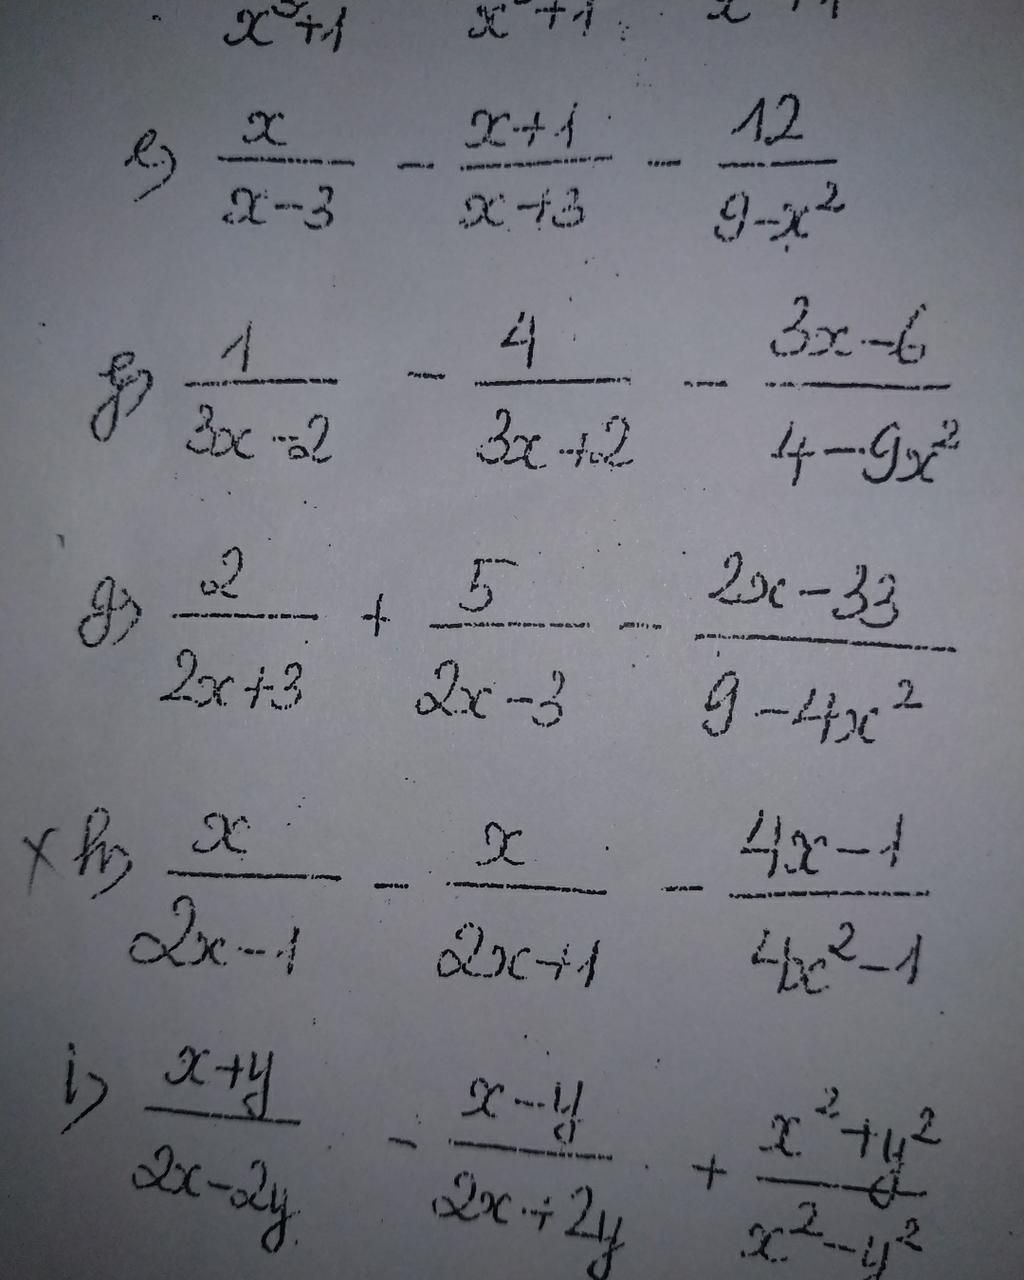 x³+1 x³+1 x³+1
e) x/(x-3) - (x+1)/(x+3) - 12/(9-x²)
f) 1/(3x-2) - 4/(3x+2) - (3x-6)/(4-9x²)
g) 2/(2x+3) + 5/(2x-3) - (2x-33)/(9-4x²)
x h) x/(2x-1) - x/(2x+1) - (4x-1)/(4x²-1)
i) (x+y)/(2x-2y) - (x-y)/(2x+2y) + (x²+y²)/(x²-y²)